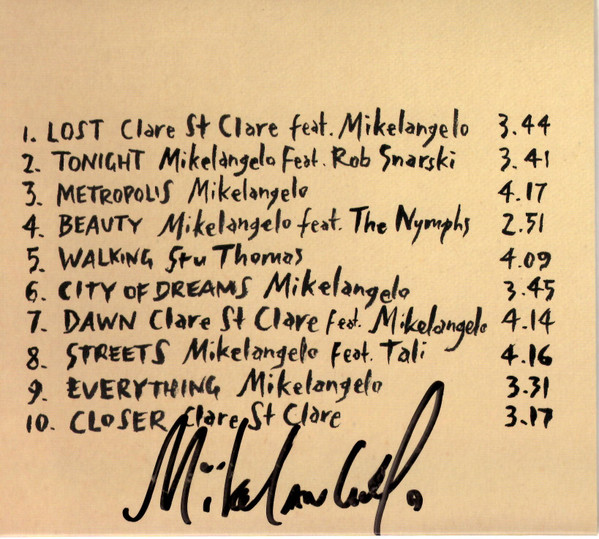 1. LOST Clare St Clare feat. Mikelangelo 3.44
2. TONIGHT Mikelangelo Feat. Rob Snarski 3.41
3. METROPOLIS Mikelangelo 4.17
4. BEAUTY Mikelangelo feat. The Nymphs 2.51
5. WALKING Stu Thomas 4.09
6. CITY OF DREAMS Mikelangelo 3.45
7. DAWN Clare St Clare feat. Mikelangelo 4.14
8. STREETS Mikelangelo feat. Tali 4.16
9. EVERYTHING Mikelangelo 3.31
10. CLOSER Clare St Clare 3.17
Mikelangelo